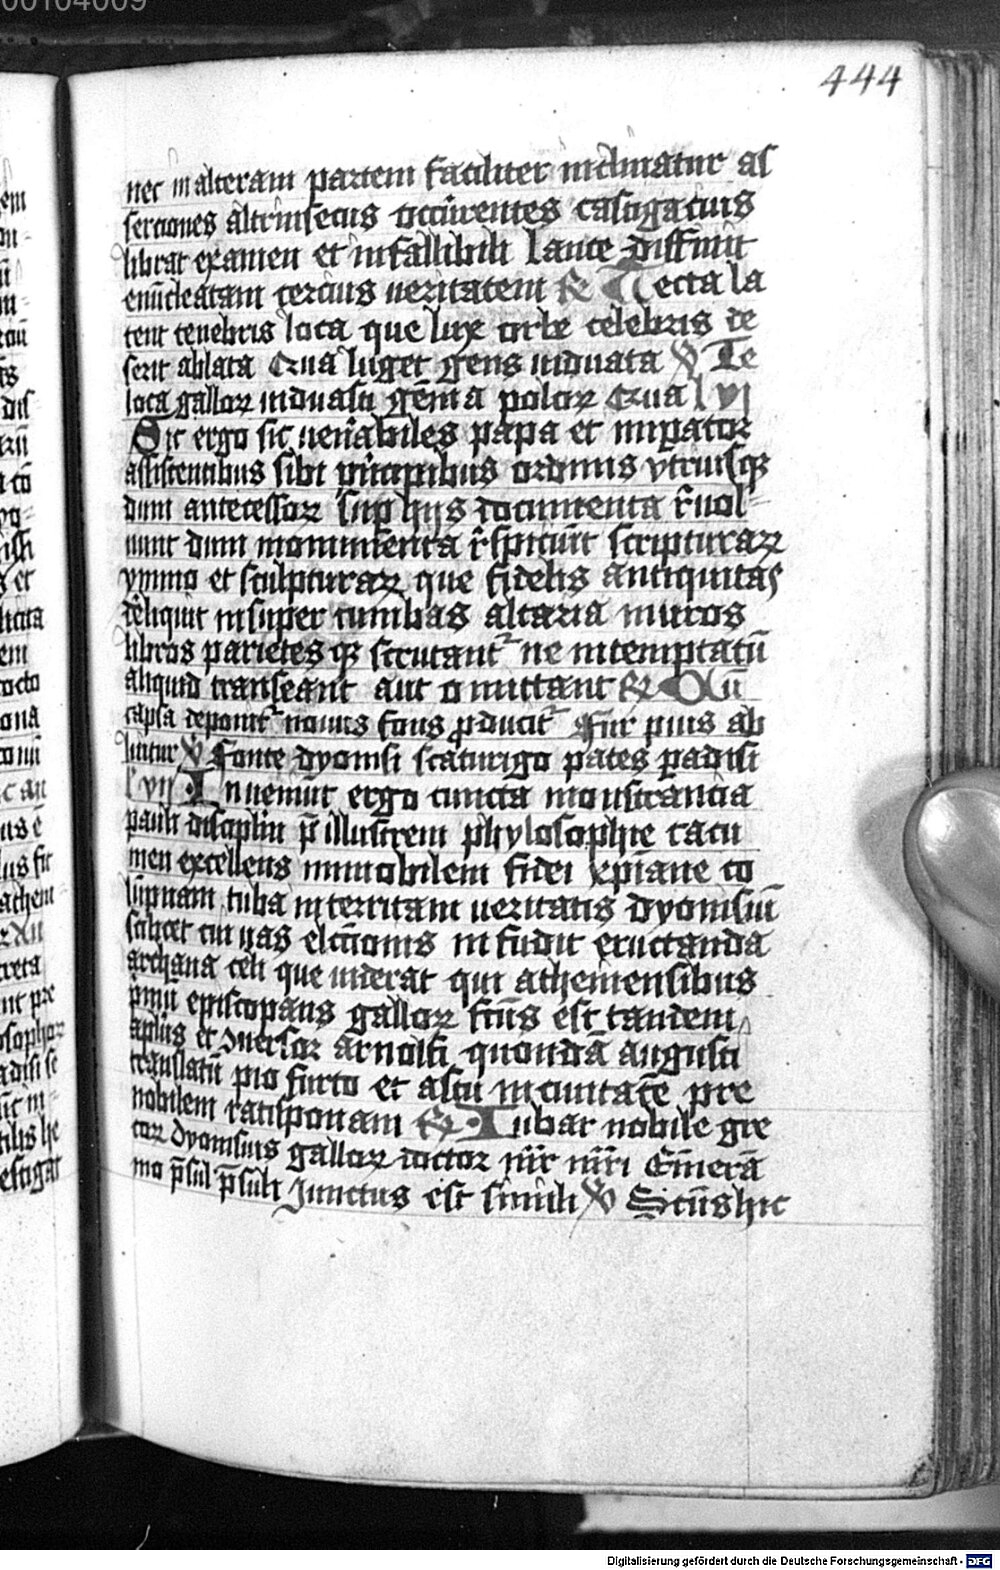 00104009
444
nec in alteram partem faciliter inclinatur as
serciones altrinsecus occurentes castigatius
librat examen et infallibili lance diffinit
enucleatam tercius veritatem R Tecta la
tent tenebris loca que lux orbe celebris de
serit ablata Qua luget gens viduata V Te
loca gallor viduasti gēm̄a polor Qua lvi
Sic ergo sic ven̄abiles papa et imperator
assistentibus sibi principibus ordinis vtriusqz
dum antecessor sup hijs documenta r̄uol
uunt dum monumenta r̄spiciūt scripturar
ymmo et sculpturar que fidelis antiquitas
deliquit insuper tumbas altaria muros
libros parietes qz scrutant ne intemptatū
aliquid transeant aut omittant R Dū
capsa deponit nouus fons producit Fur pius ab
luitur V Fonte dyonisi scaturigo pates padisi
lvij Inueniūt ergo cuncta monstrancia
pauli discipulū p̄illustrem phylosophie catu
men excellens immobilem fidei xp̄iane co
lūpnam tuba interritam veritatis dyonisiū
scilicet cui vas elcc̄ionis infudit eructanda
archana celi que viderat qui atheniensibus
p̄mū episcopans gallor fc̄us est tandem
ap̄lus et Inersor arnolfi quondā augusti
translatū pio furto et astu in ciuitatē pre
nobilem ratisponam R Iubar nobile gre
cor dyonisius gallor doctor nr̄ nr̄i Em̄erā
mo p̄sul p̄suli Junctus est simili V Sc̄us hic
Digitalisierung gefördert durch die Deutsche Forschungsgemeinschaft - DFG